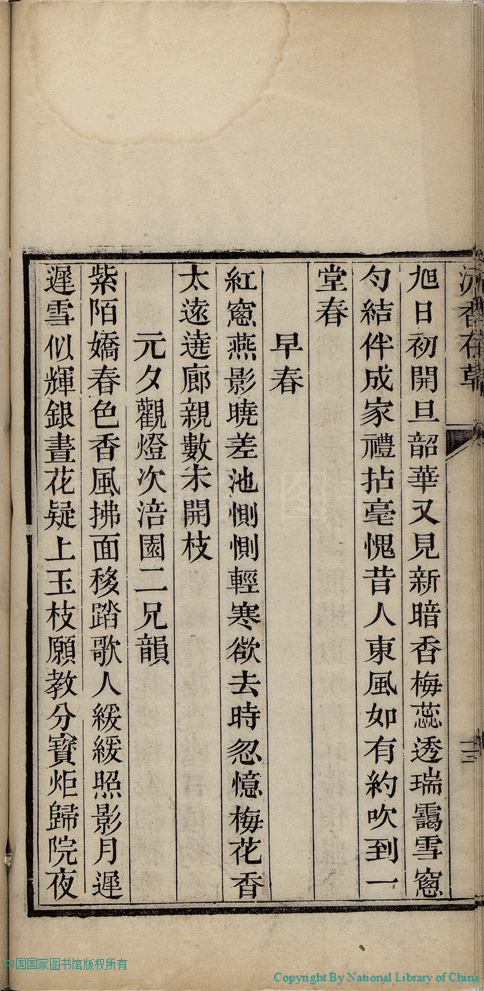 旭日初開旦韶華又見新暗香梅蕊透瑞靄雪窻
勻結伴成家禮拈毫愧昔人東風如有約吹到一
堂春
早春
紅窻燕影曉差池惻惻輕寒欲去時忽憶梅花香
太遠遶廊親數未開枝
元夕觀燈次涪園二兄韻
紫陌嬌春色香風拂面移踏歌人緩緩照影月遲
遲雪似輝銀晝花疑上玉枝願教分寶炬歸院夜
中国国家图书馆版权所有
Copyright By National Library of China